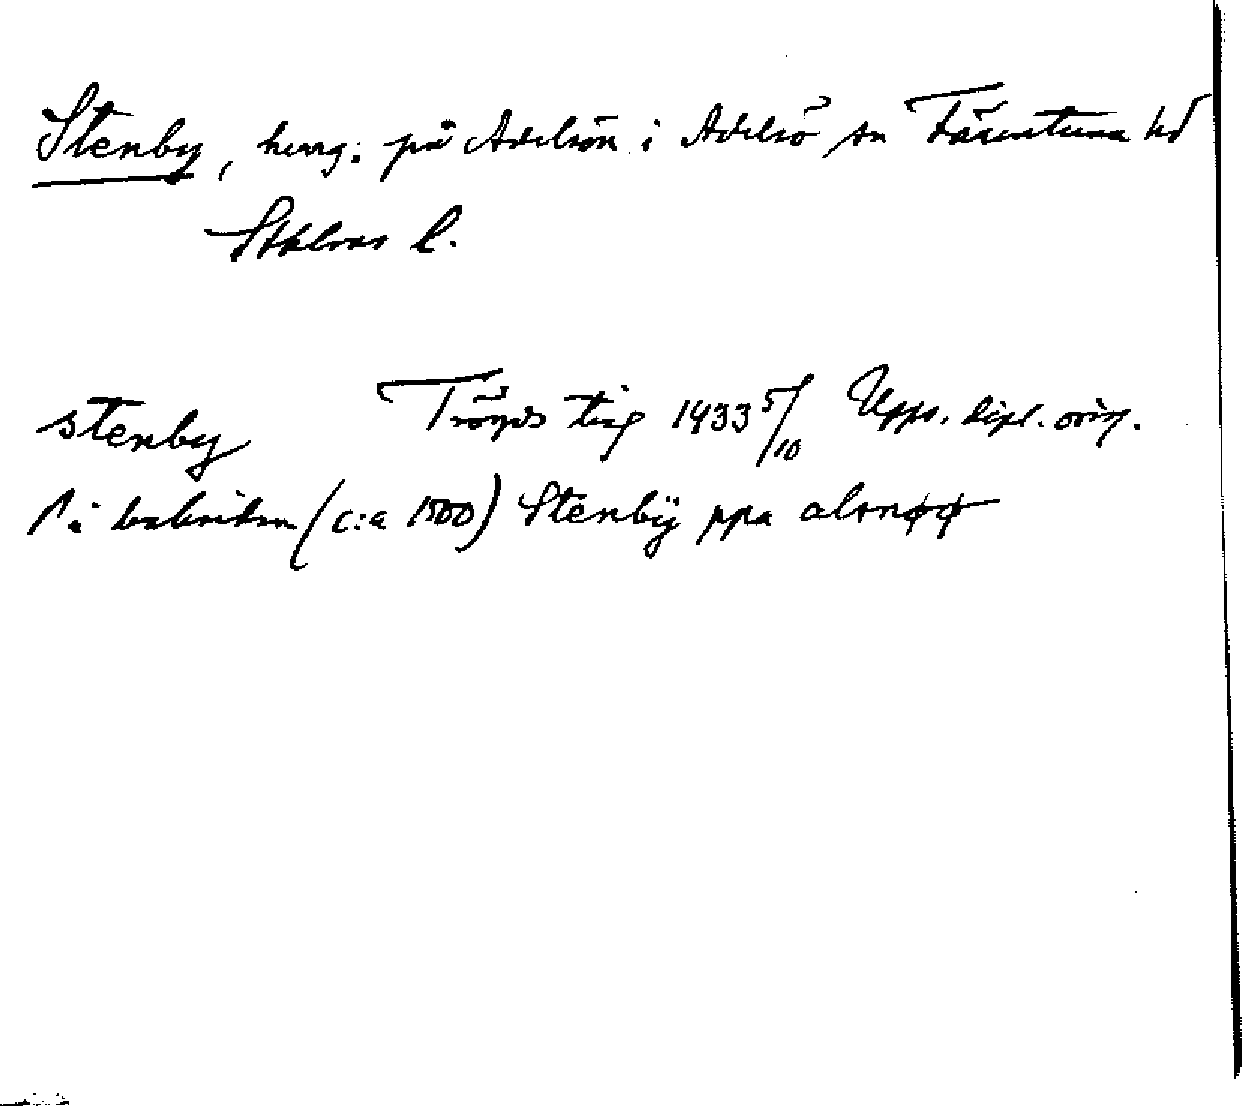 Stenby, herrg. på Adelsön i Adelsö sn Färentuna hd
Sthlms l.
stenby Trögds ting 1433 5/10 Upps. dipl. orig.
På baksidan (c:a 1500) Stenbÿ ppa alsnøø